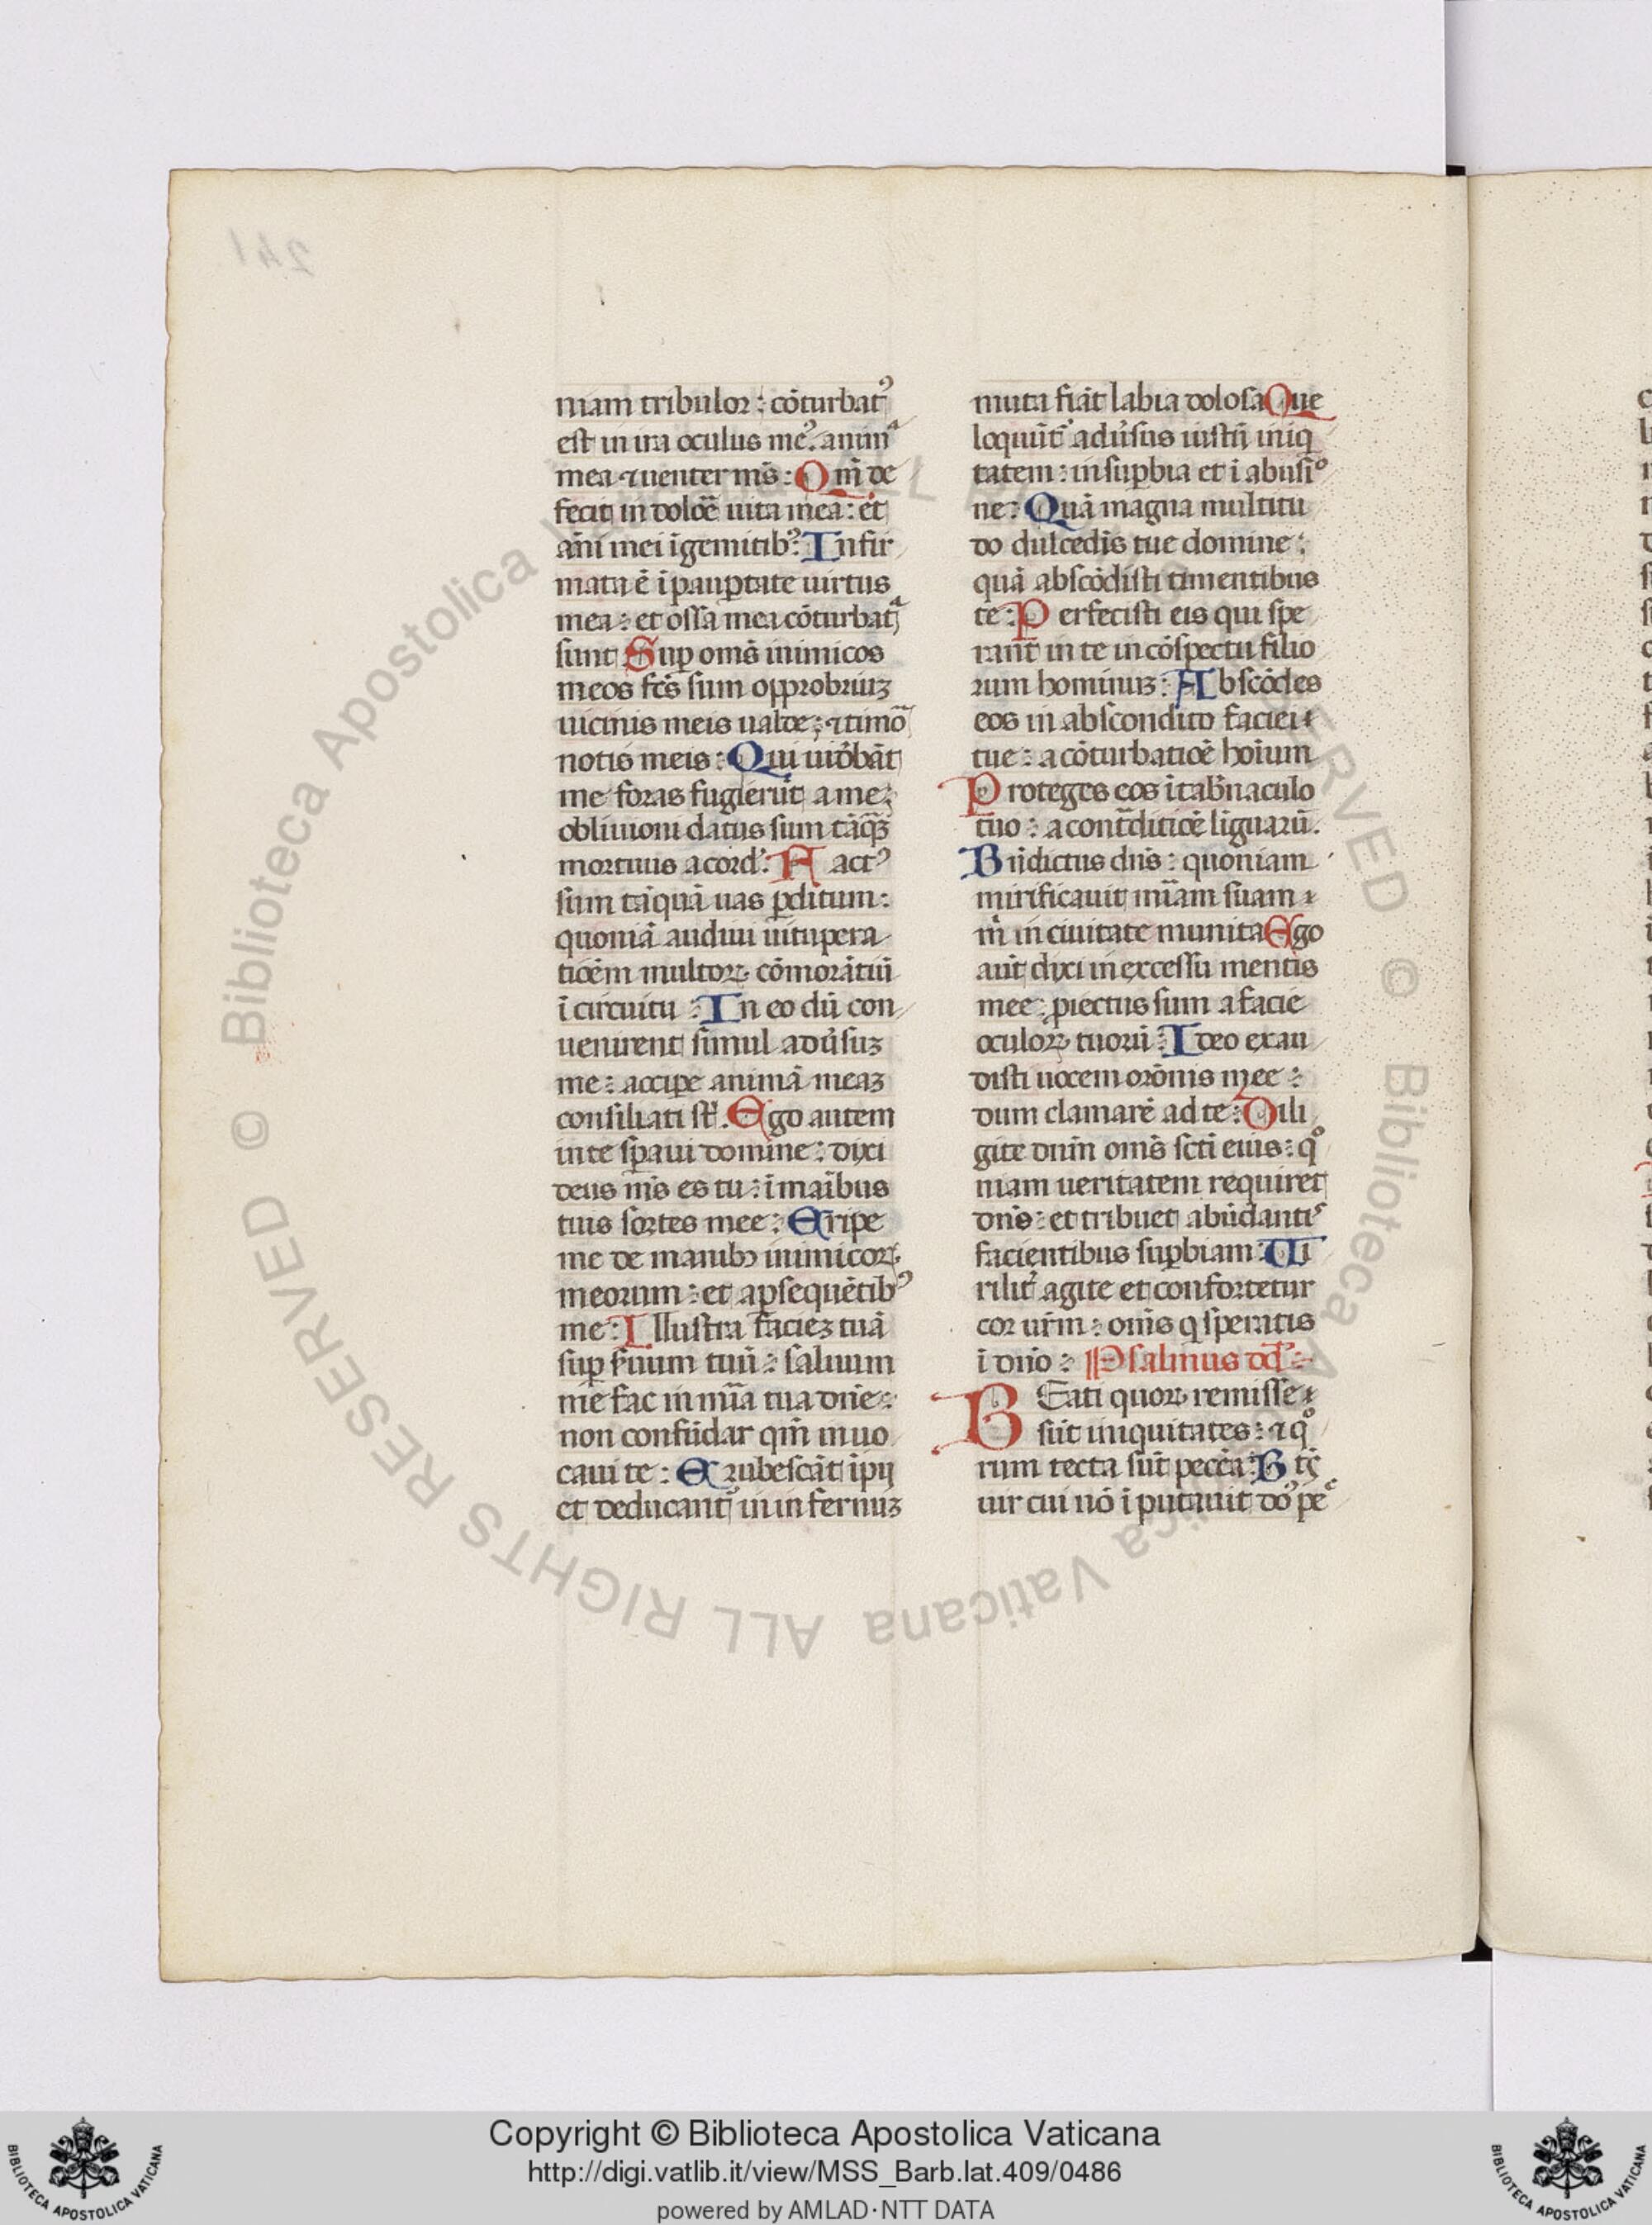 niam tribulor : cōturbatꝰ
est in ira oculus meꝰ. animᵃ
mea ⁊ uenter ms̄ : Qm̄ de
fecit in dolōē uita mea : et
an̄i mei īgemitibꝰ : Infir
mata ē ī paup̄tate uirtus
mea : et ossa mea cōturbatᵃ
sunt Suꝑ om̄s inimicos
meos fc̄s sum opprobriuʒ
uicinis meis ualde : ⁊ timō
notis meis : Qui uid̄bāt
me foras fugierūt a me :
obliuioni datus sum tāqʒ̄
mortuus a cord̕ : F actꝰ
sum tāquā uas ꝑditum :
quoniā audiui uitupera
ticēm multoꝝ cōmorātiū
ī circuitu : In eo dū con
uenirent simul adūsuʒ
me : accipe animā meaʒ
consiliati st̄. Ego autem
in te sꝑaui domine : dixi
deus ms̄ es tu : ī maībus
tuis sortes mee : Eripe
me de manibꝫ inimicoꝝ
meorum : et a ꝑsequētibꝰ
me : Illustra facieʒ tuā
suꝑ s̄uum tuū : saluum
me fac in mīa tua dn̄e :
non confūdar qm̄ inuo
caui te : Erubescāt ipīj
et deducantᷣ in infernuʒ
muta fiāt labia dolosa Que
loquūtᷣ adūsus iustū iniq
tatem : in suꝑbia et ī abusiᵒ
ne : Quā magna multitu
do dulcedis̄ tue domine :
quā abscōdisti timentibus
te : P erfecisti eis qui spe
rant in te in cōspectu filio
rum hominuʒ : Abscōdes
eos in abscondito faciei
tue : a cōturbatioē hoīum
Proteges eos ī tab̄naculo
tuo : a cont̄dictioē liguarū.
Bn̄dictus dn̄s : quoniam
mirificauit mīam suam
m̄ in ciuitate munita Ego
aūt dixi in excessu mentis
mee : ꝓiectus sum a facie
oculoꝝ tuorū : Ideo exau
disti uocem orōnis mee :
dum clamarē ad te : Dili
gite dnm̄ om̄s scti eius : qͦ
niam ueritatem requiret
dn̄s : et tribuet abūdantᷣ
facientibus suꝑbiam : Ui
rilitᷣ agite et confortetur
cor ur̄m : om̄s q speratis
ī dn̄o : Psalmus dd̄ :
B Eati quoꝝ remisse
sūt iniquitates : ⁊ qͦ
rum tecta sūt pecc̄a : B tꝰ
uir cui nō ī putauit dōꝰ peᶜ
241
Copyright © Biblioteca Apostolica Vaticana
http://digi.vatlib.it/view/MSS_Barb.lat.409/0486
powered by AMLAD·NTT DATA
© Biblioteca Apostolica Vaticana ALL RIGHTS RESERVED
© Biblioteca Apostolica Vaticana ALL RIGHTS RESERVED
BIBLIOTECA APOSTOLICA VATICANA
BIBLIOTECA APOSTOLICA VATICANA